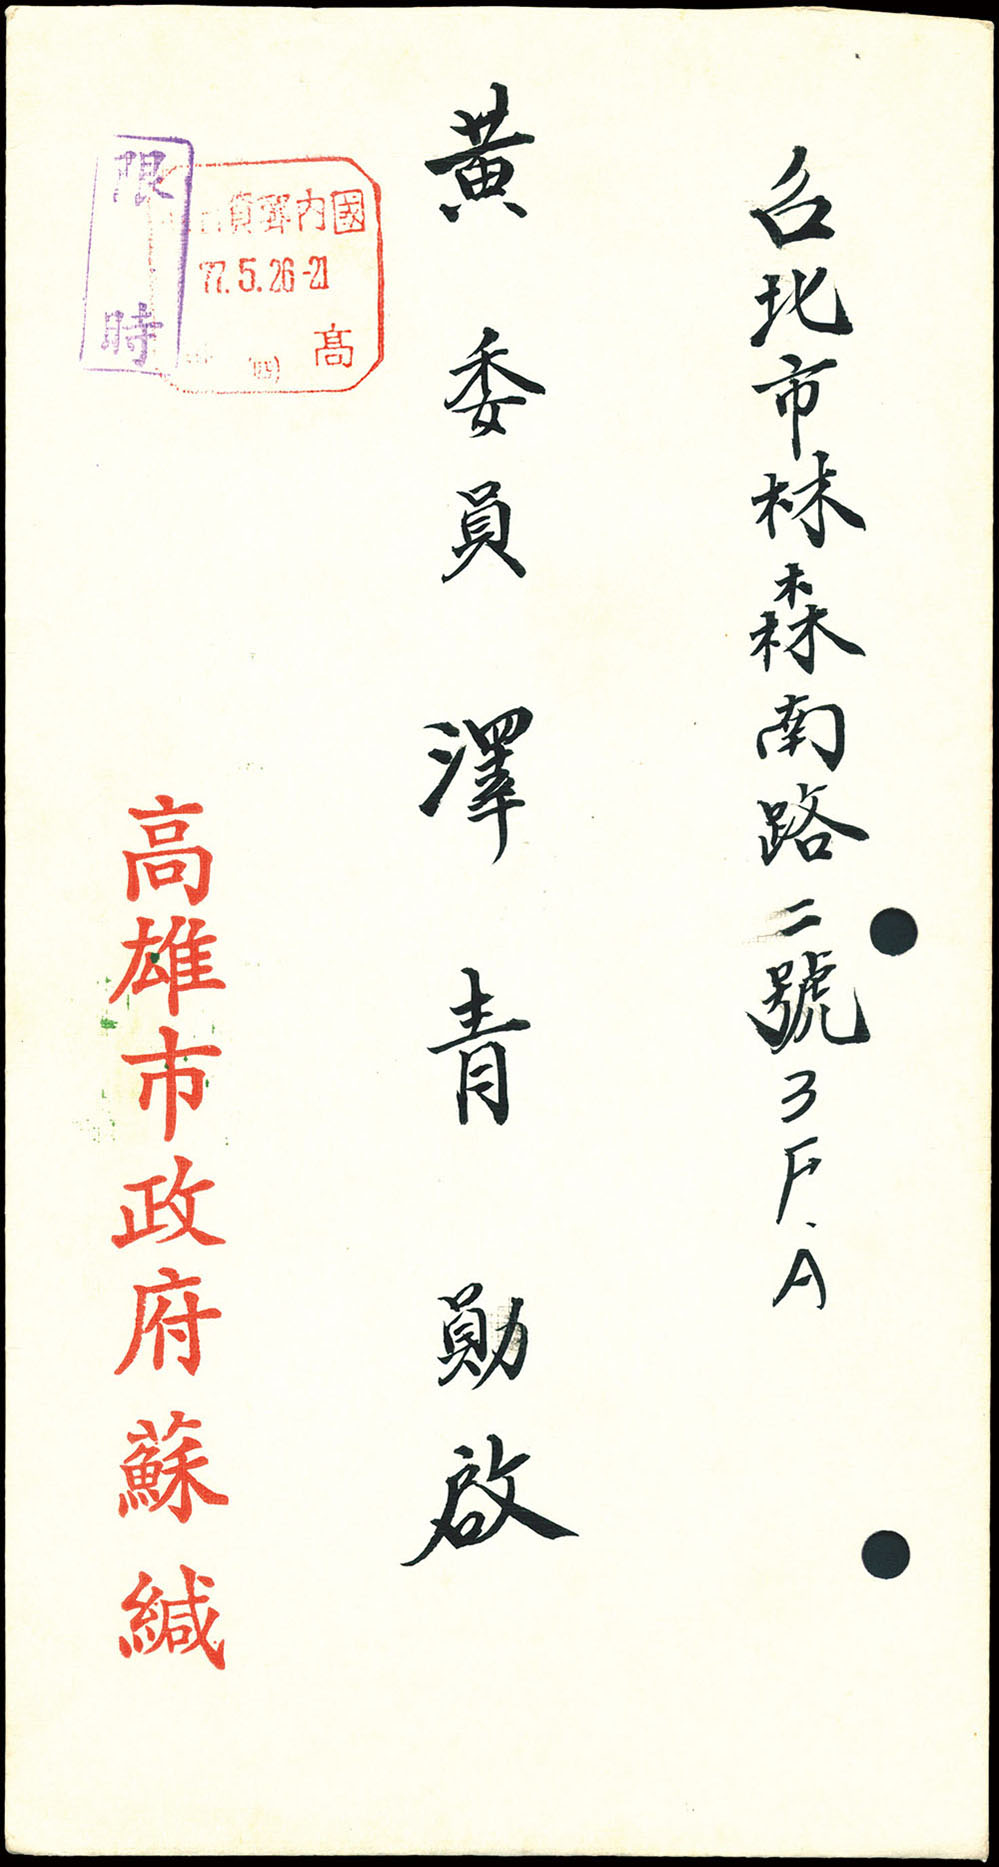 台北市林森南路二號3F.A
黃委員澤青勛啟
高雄市政府蘇緘
限時
國內郵資
77.5.26-21
高
(四)